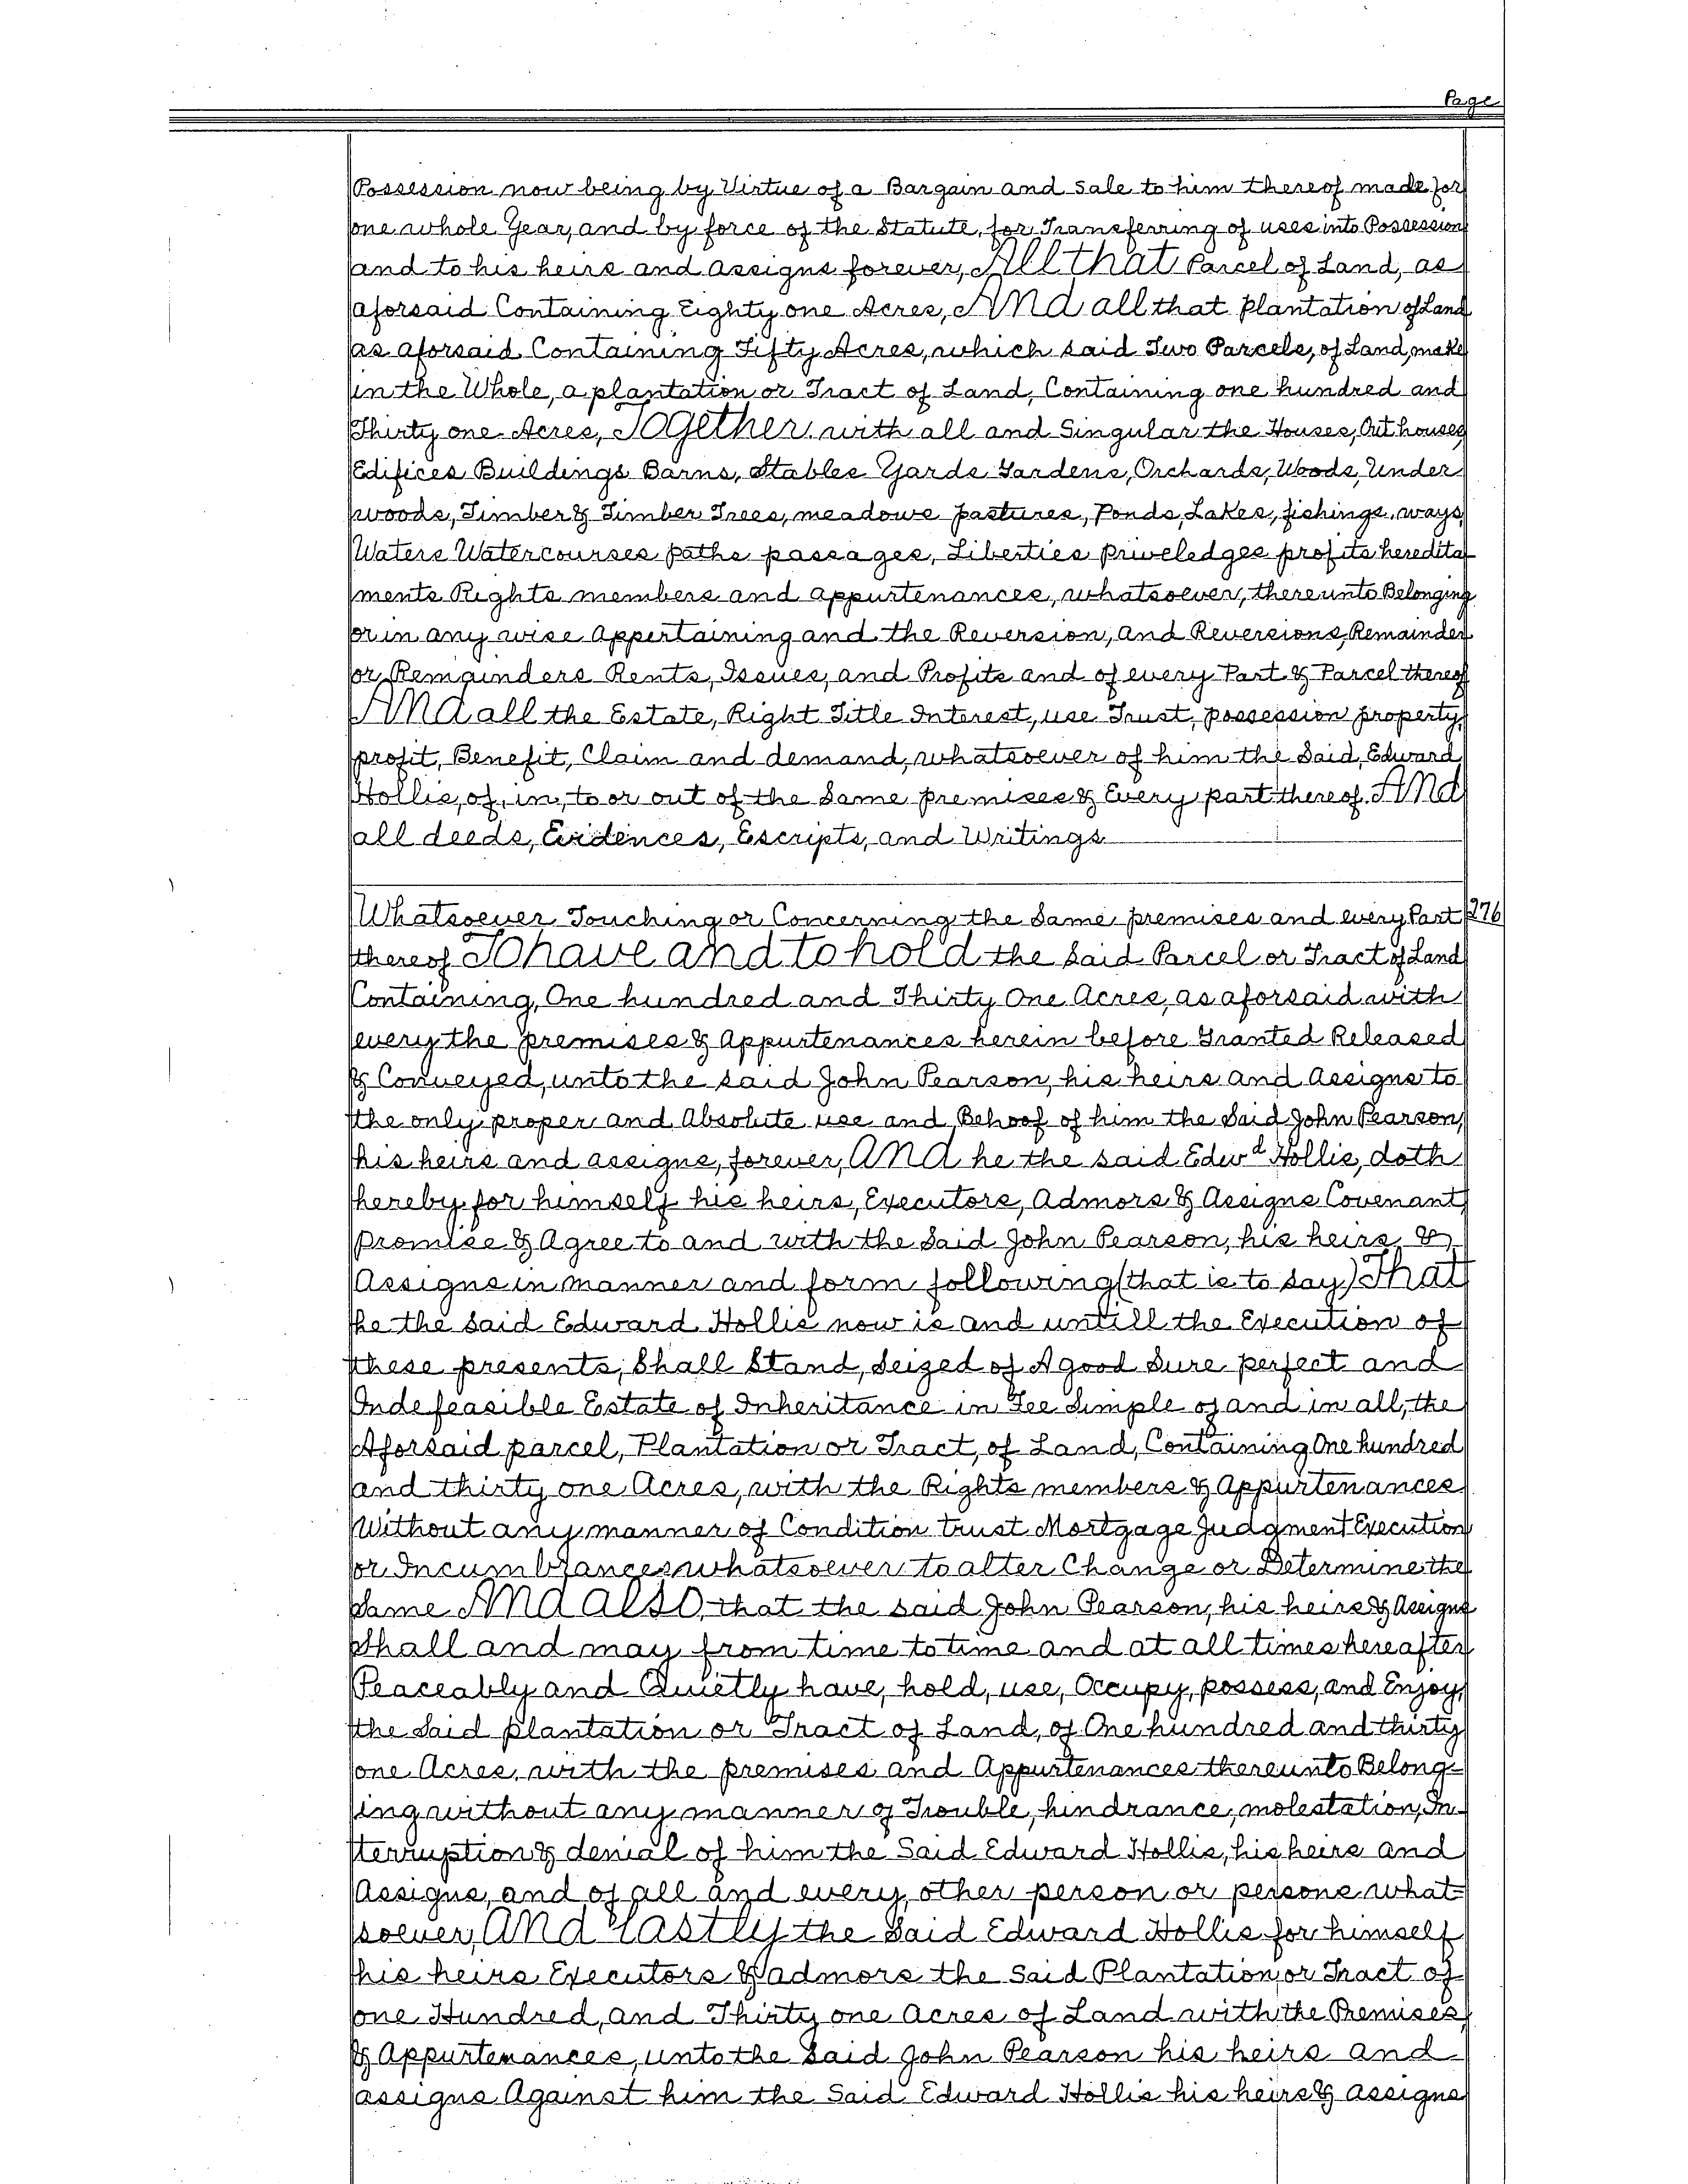 Page
Possession now being by Virtue of a Bargain and Sale to him thereof made for
one whole Year, and by force of the Statute, for Transferring of uses into Possession
and to his heirs and assigns forever, All that Parcel of Land, as
aforsaid Containing Eighty one Acres, And all that plantation of Land
as aforsaid Containing Fifty Acres, which said Two Parcels, of Land, make
in the Whole, a plantation or Tract of Land, Containing one hundred and
Thirty one Acres, Together with all and Singular the Houses, Out houses,
Edifices Buildings Barns, Stables Yards Gardens, Orchards, Woods, Under
woods, Timber & Timber Trees, meadows pastures, Ponds, Lakes, fishings, ways,
Waters Watercourses paths passages, Liberties priveledges profits heredita
ments Rights members and appurtenances, whatsoever, thereunto Belonging
or in any wise Appertaining and the Reversion, and Reversions, Remainder
or Remainders Rents, Issues, and Profits and of every Part & Parcel thereof
And all the Estate, Right Title Interest, use Trust, possession property,
profit, Benefit, Claim and demand, whatsoever of him the Said, Edward
Hollis, of, in, to or out of the Same premises & Every part thereof. And
all deeds, Evidences, Escripts, and Writings
Whatsoever Touching or Concerning the Same premises and every Part 276
thereof To have and to hold the Said Parcel or Tract of Land
Containing, One hundred and Thirty One Acres, as aforsaid with
every the premises & Appurtenances herein before Granted Released
& Conveyed, unto the said John Pearson, his heirs and Assigns to
the only proper and Absolute use and Behoof of him the Said John Pearson,
his heirs and assigns, forever, And he the said Edwd Hollis, doth
hereby for himself his heirs, Executors, Admors & Assigns Covenant,
Promise & Agree to and with the Said John Pearson, his heirs, &
Assigns in manner and form following (that is to Say) That
he the Said Edward Hollis now is and untill the Execution of
these presents, Shall Stand, Seized of A good Sure perfect and
Indefeasible Estate of Inheritance in Fee Simple of and in all, the
Aforsaid parcel, Plantation or Tract, of Land, Containing One hundred
and thirty one Acres, with the Rights members & Appurtenances
Without any manner of Condition trust Mortgage Judgment Execution
or Incumbrances whatsoever to alter Change or Determine the
Same And also, that the said John Pearson, his heirs & Assigns
Shall and may from time to time and at all times hereafter
Peaceably and Quietly have, hold, use, Occupy, possess, and Enjoy,
the Said plantation or Tract of Land, of One hundred and thirty
one Acres, with the premises and Appurtenances thereunto Belong-
ing without any manner of Trouble, hindrance, molestation, In-
terruption & denial of him the Said Edward Hollis, his heirs and
Assigns, and of all and every, other person or persons what-
soever, And lastly the Said Edward Hollis for himself
his heirs Executors & admors the Said Plantation or Tract of
one Hundred, and Thirty one Acres of Land with the Premises,
& Appurtenances, unto the Said John Pearson his heirs and
assigns Against him the Said Edward Hollis his heirs & assigns